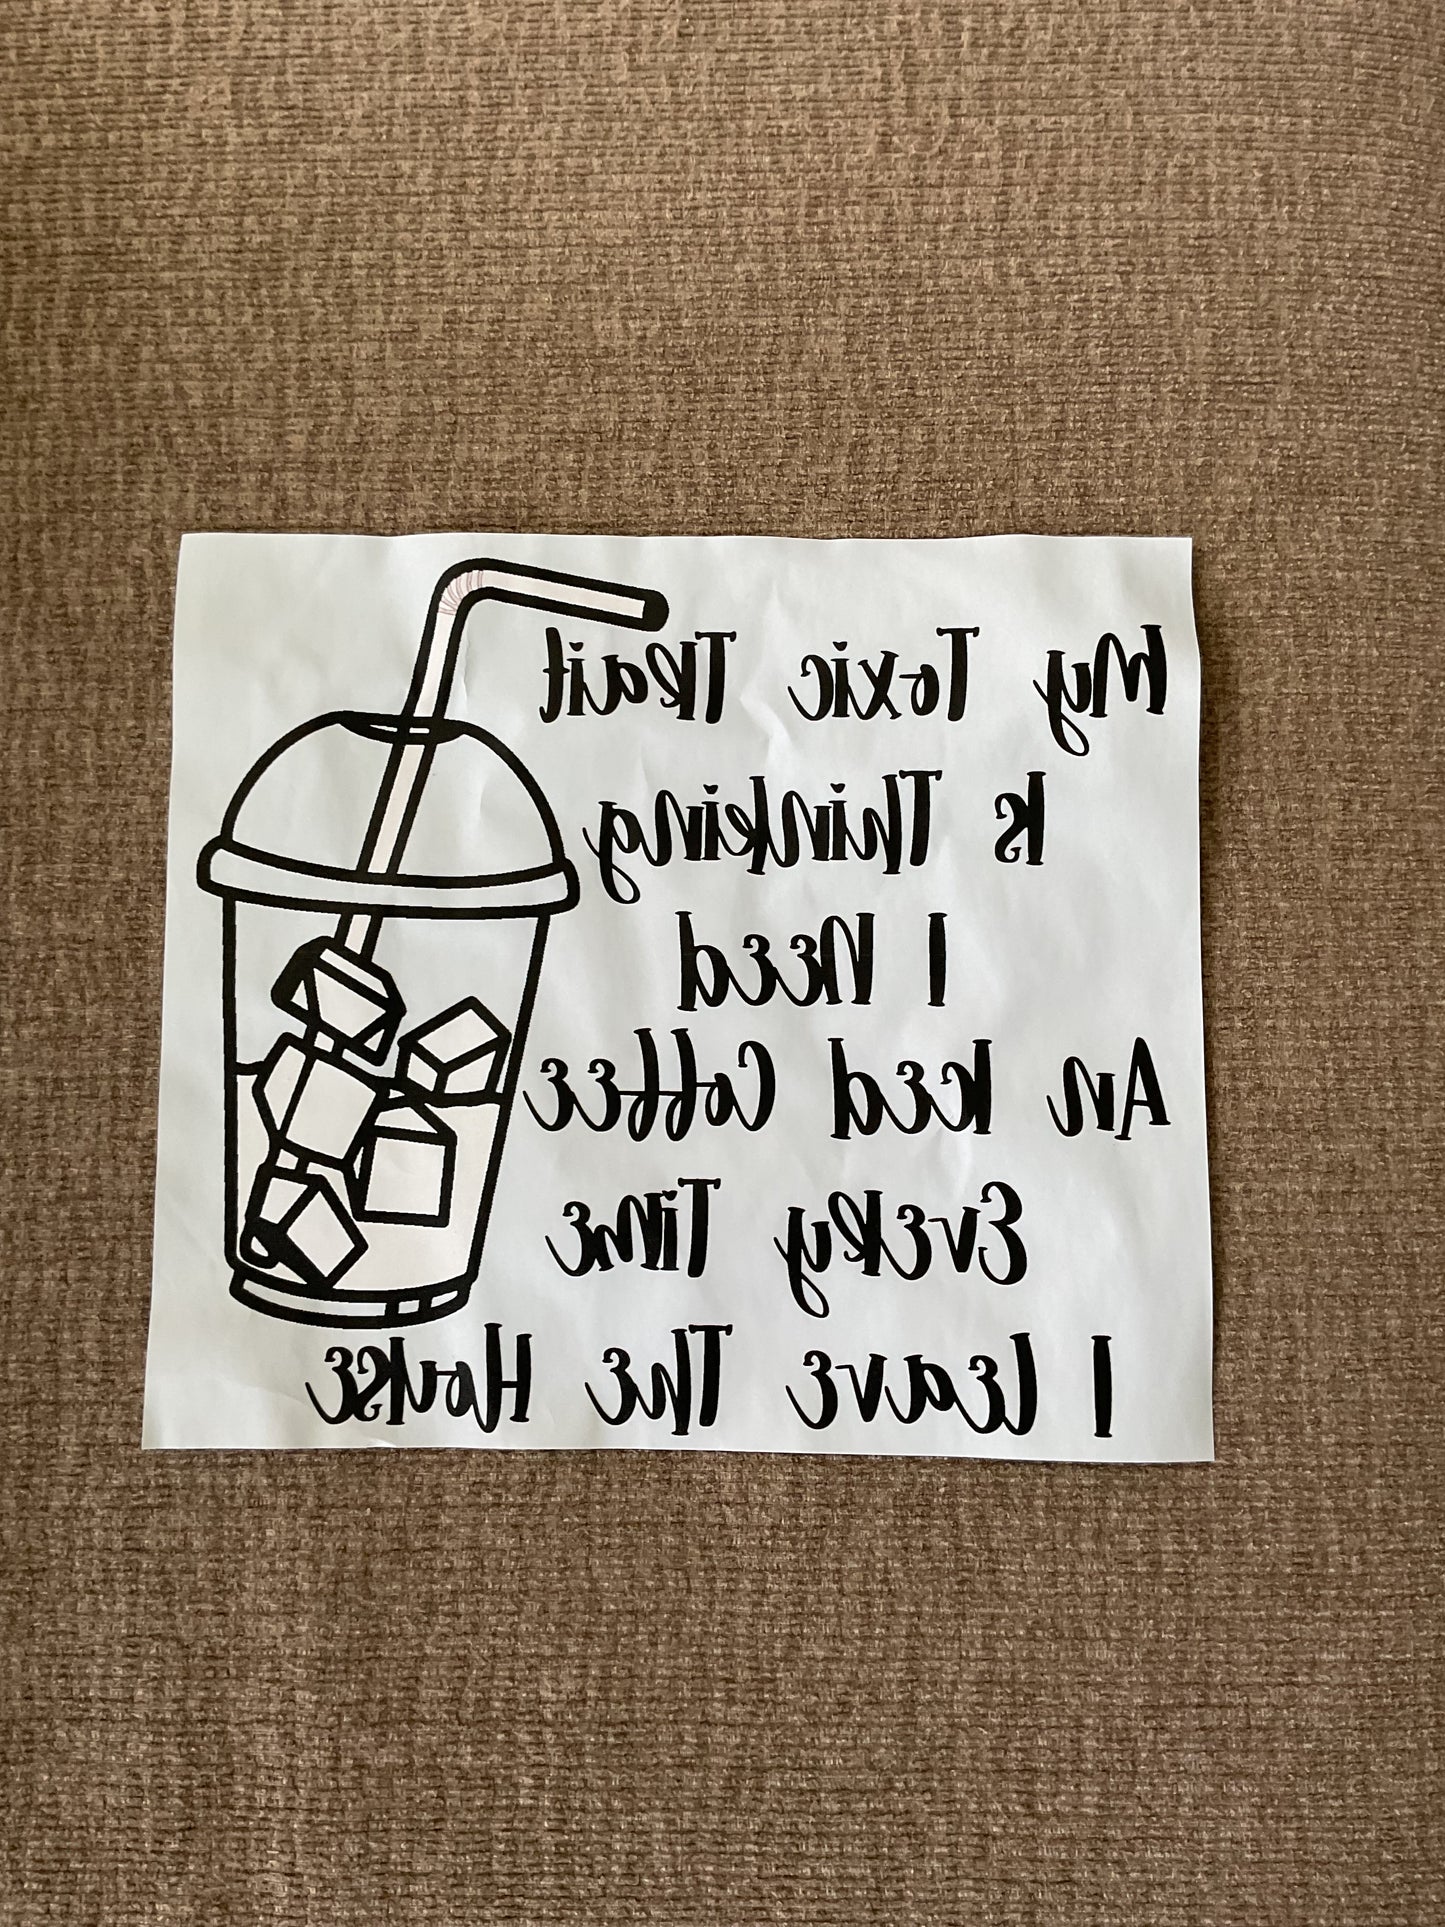 My Toxic Trait
Is Thinking
I Need
An Iced Coffee
Every Time
I Leave The House